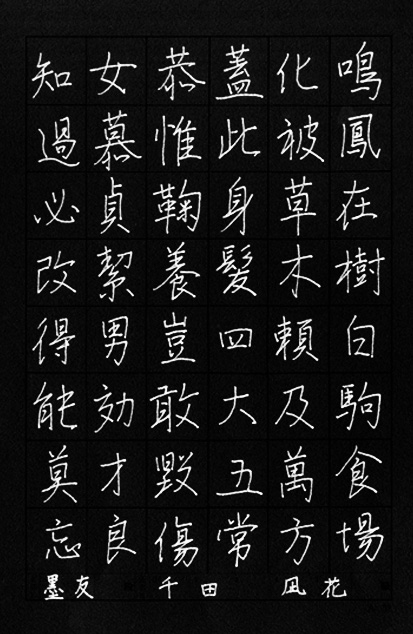 鳴鳳在樹白駒食場
化被草木頼及萬方
蓋此身髮四大五常
恭惟鞠養豈敢毀傷
女慕貞絜男効才良
知過必改得能莫忘
墨友 千田 凪花